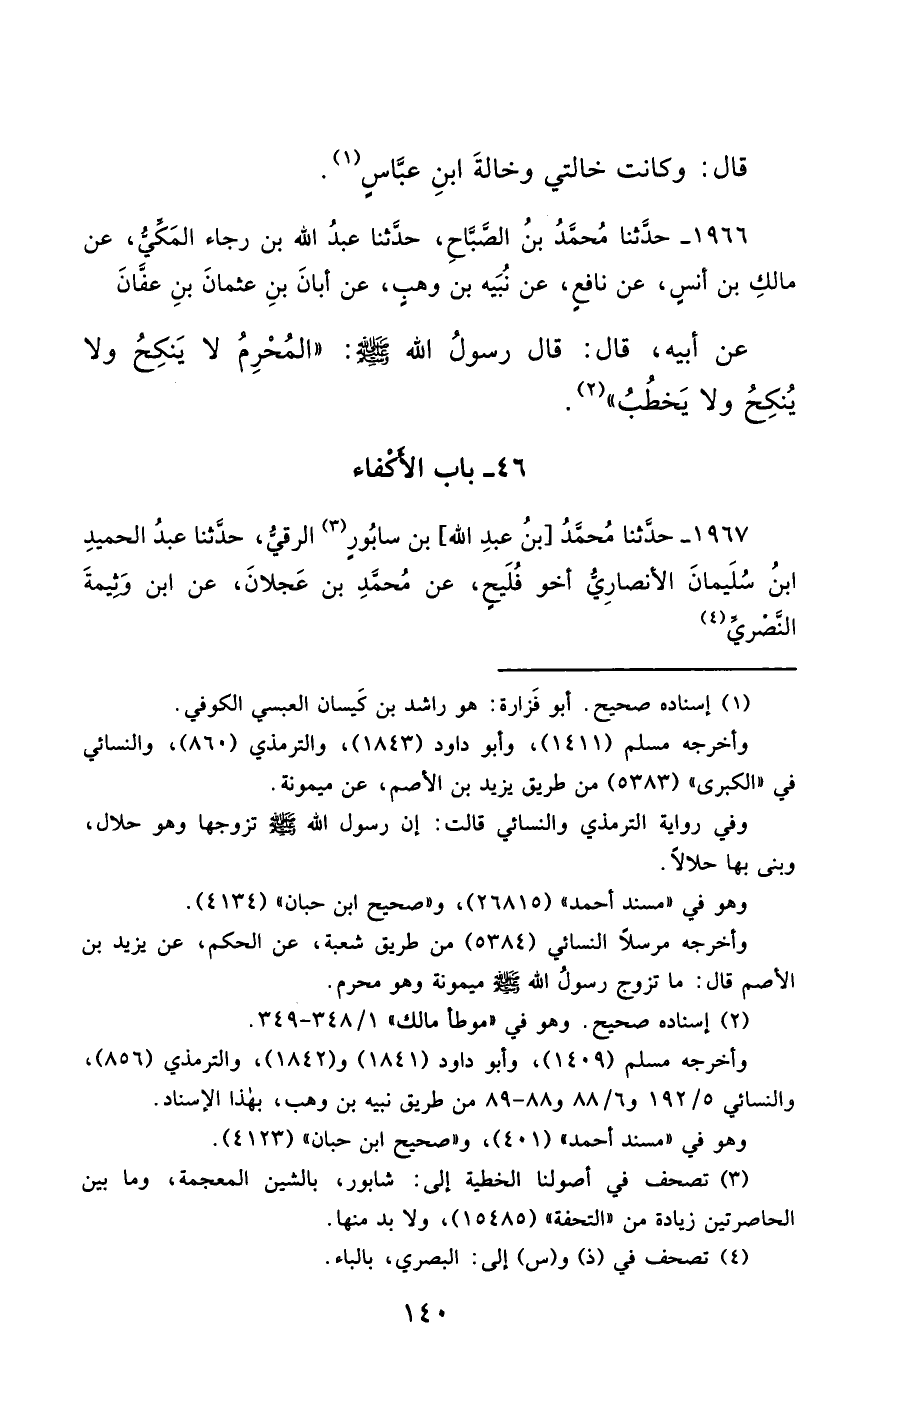 قال: وكانت خالتي وخالةَ ابنِ عبَّاسٍ(١).
١٩٦٦ـ حدَّثنا مُحمَّدُ بنُ الصَّبَّاحِ، حدَّثنا عبدُ الله بن رجاء المَكِّيُّ، عن
مالكِ بن أنسٍ، عن نافعٍ، عن نُبَيه بن وهبٍ، عن أبانَ بنِ عثمانَ بنِ عفَّانَ
عن أبيه، قال: قال رسولُ الله ﷺ: «المُحْرِمُ لا يَنكِحُ ولا
يُنكِحُ ولا يَخطُبُ»(٢).
٤٦ـ باب الأَكْفاء
١٩٦٧ـ حدَّثنا مُحمَّدُ [بنُ عبدِ الله] بن سابُورٍ(٣) الرقيُّ، حدَّثنا عبدُ الحميدِ
ابنُ سُلَيمانَ الأنصارِيُّ أخو فُلَيحٍ، عن مُحمَّدِ بن عَجلانَ، عن ابن وَثِيمةَ
النَّصْريِّ(٤)
(١) إسناده صحيح. أبو فَزارة: هو راشد بن كَيسان العبسي الكوفي.
وأخرجه مسلم (١٤١١)، وأبو داود (١٨٤٣)، والترمذي (٨٦٠)، والنسائي
في «الكبرى» (٥٣٨٣) من طريق يزيد بن الأصم، عن ميمونة.
وفي رواية الترمذي والنسائي قالت: إن رسول الله ﷺ تزوجها وهو حلال،
وبنى بها حلالاً.
وهو في «مسند أحمد» (٢٦٨١٥)، و«صحيح ابن حبان» (٤١٣٤).
وأخرجه مرسلاً النسائي (٥٣٨٤) من طريق شعبة، عن الحكم، عن يزيد بن
الأصم قال: ما تزوج رسولُ الله ﷺ ميمونة وهو محرم.
(٢) إسناده صحيح. وهو في «موطأ مالك» ٣٤٨/١-٣٤٩.
وأخرجه مسلم (١٤٠٩)، وأبو داود (١٨٤١) و(١٨٤٢)، والترمذي (٨٥٦)،
والنسائي ١٩٢/٥ و٨٨/٦ و٨٨-٨٩ من طريق نبيه بن وهب، بهٰذا الإسناد.
وهو في «مسند أحمد» (٤٠١)، و«صحيح ابن حبان» (٤١٢٣).
(٣) تصحف في أصولنا الخطية إلى: شابور، بالشين المعجمة، وما بين
الحاصرتين زيادة من «التحفة» (١٥٤٨٥)، ولا بد منها.
(٤) تصحف في (ذ) و(س) إلى: البصري، بالباء.
١٤٠